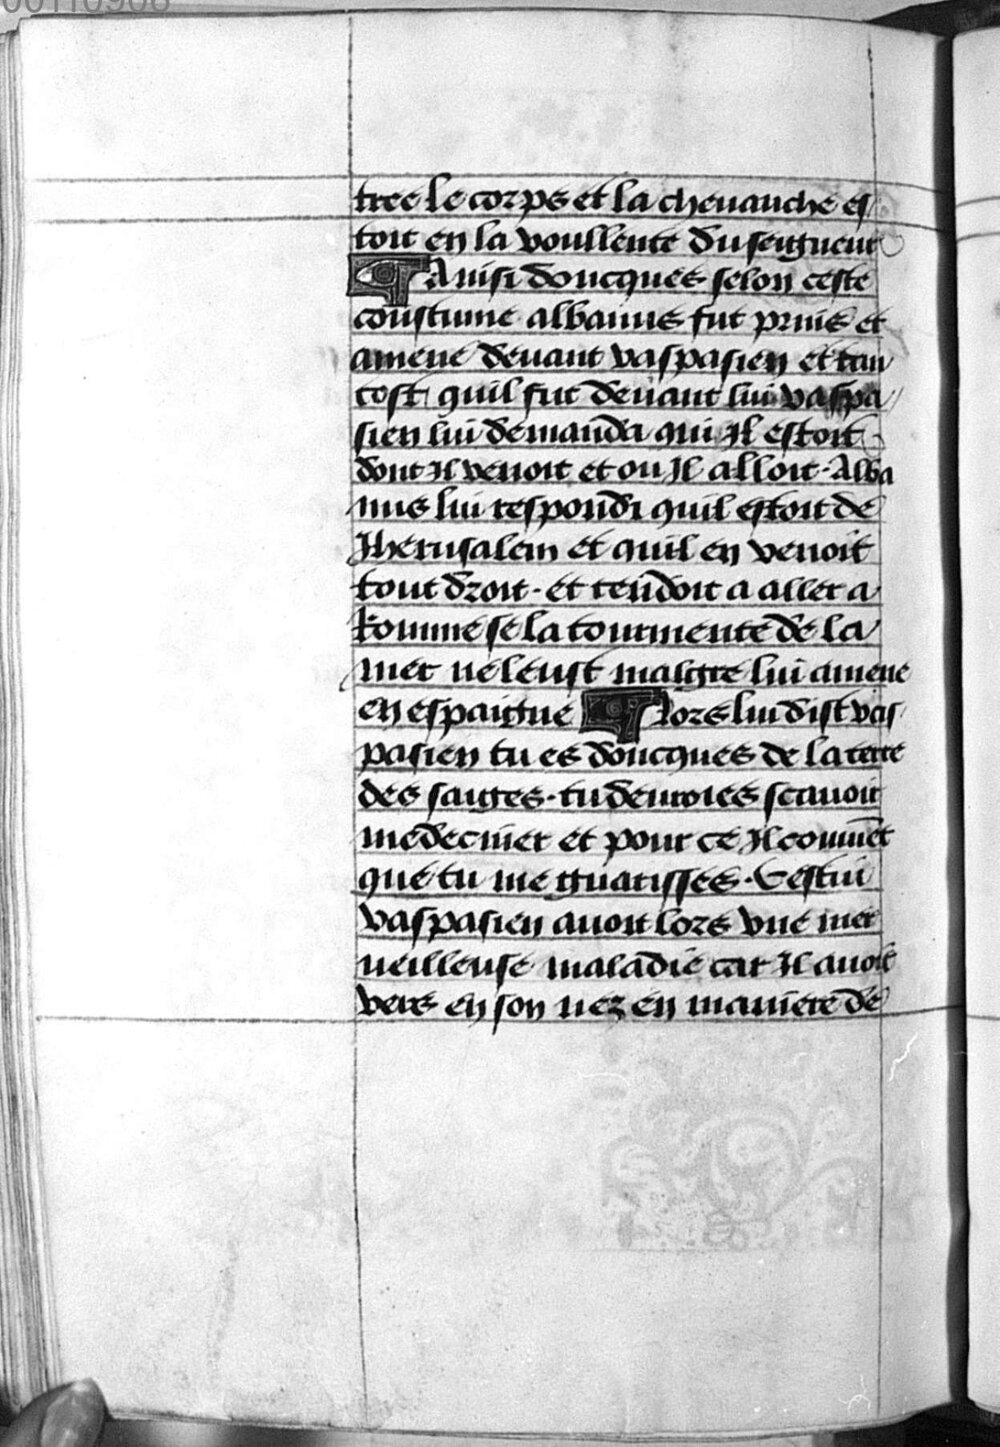 00110906
tree le corps et la cheuauche es
toit en la voullente du seigneur
Ainsi doncques selon ceste
coustume albanus fut prins et
amene deuant vaspasien et tan
tost quil fut deuant lui vaspa
sien lui demanda qui Il estoit
dont Il venoit et ou Il alloit. Alba
nus lui respondi quil estoit de
Iherusalem et quil en venoit
tout droit. et tendoit a aller a
Romme se la tourmente de la
mer ne leust malgre lui amene
en espaigne lors lui dist vas
pasien tu es doncques de la terre
des saiges. tu deuroies scauoir
medeciner et pour ce Il conuiẽt
que tu me guarisses. Cestui
vaspasien auoit lors vne mer
ueilleuse maladie car Il auoit
vers en son nez en maniere de